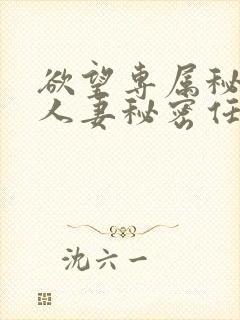 欲望专属秘
人妻秘密任
沈六一